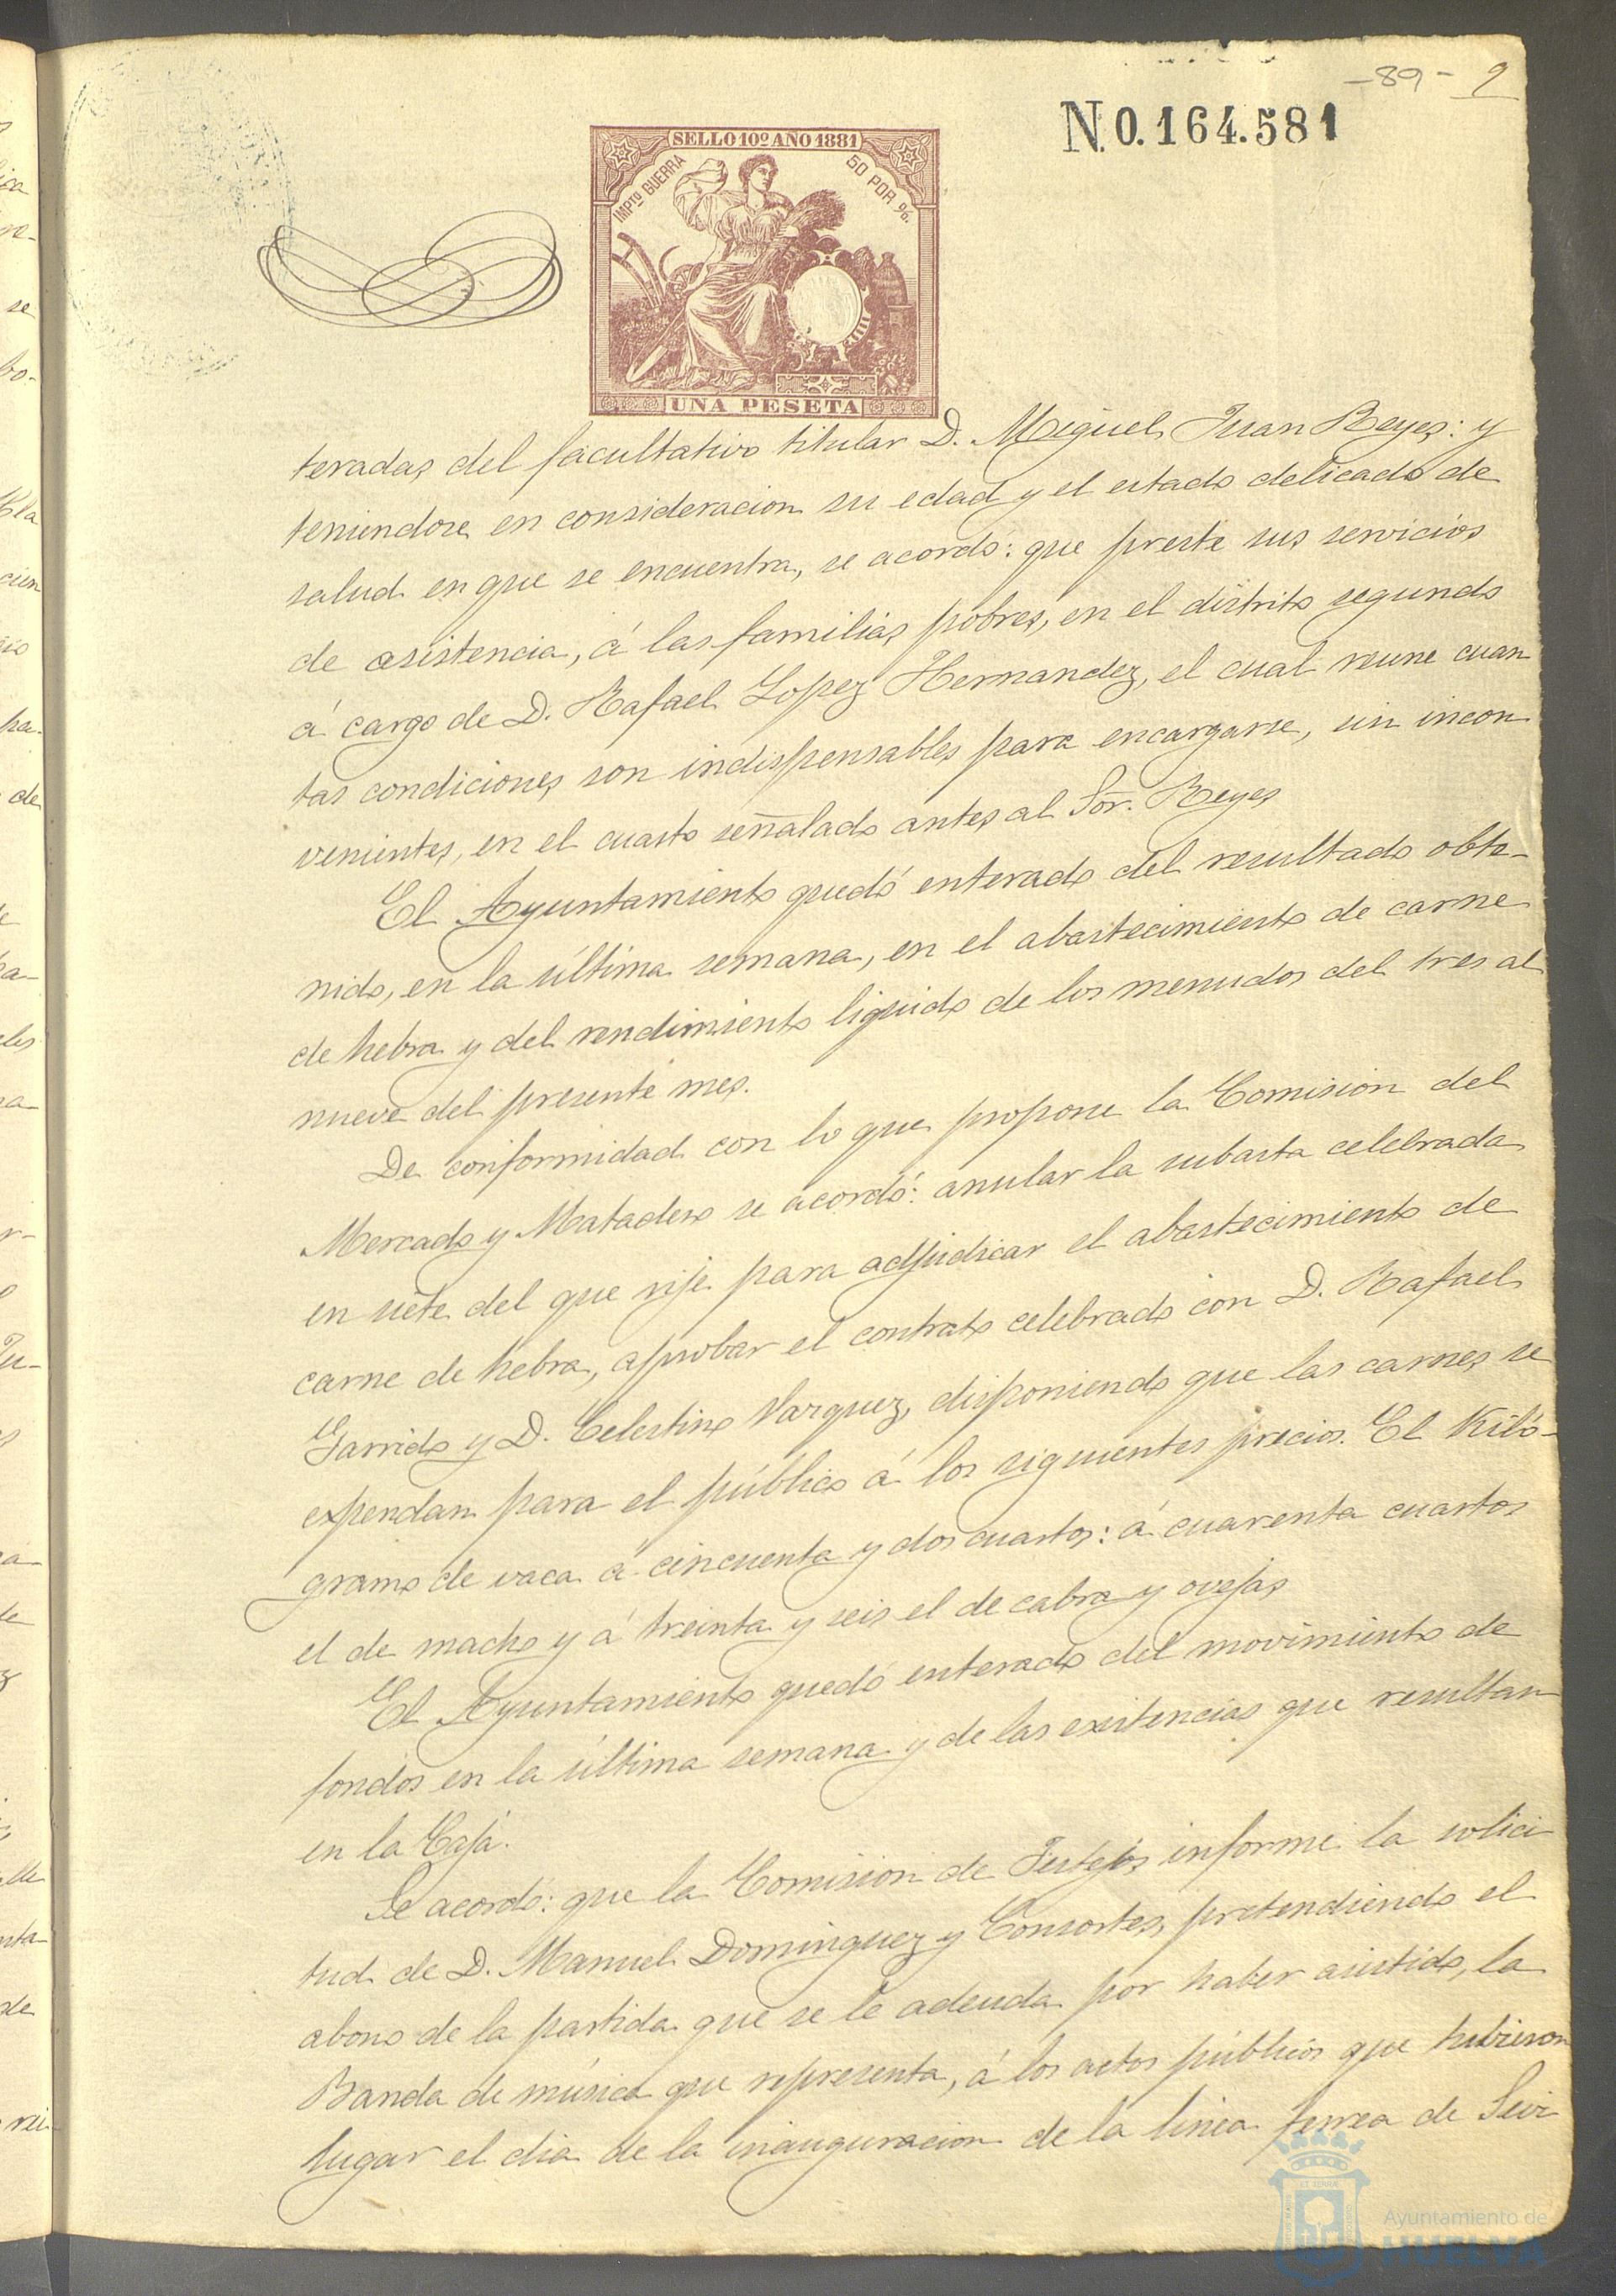 -89- 9
N.0.164.581
SELLO 10º AÑO 1881
IMPTO GUERRA 50 POR %.
UNA PESETA
teradas del facultativo titular D. Miguel Juan Reyes: y
teniendose en consideracion su edad y el estado delicado de
salud en que se encuentra, se acordó: que preste sus servicios
de asistencia, á las familias pobres, en el distrito segundo
á cargo de D. Rafael Lopez Hernandez, el cual reune cuan
tas condiciones son indispensables para encargarse, sin incon
venientes, en el cuarto señalado antes al Sör. Reyes
El Ayuntamiento quedó enterado del resultado obte-
nido, en la última semana, en el abastecimiento de carne
de hebra y del rendimiento liquido de los menudos del tres al
nueve del presente mes.
De conformidad con lo que propone la Comision del
Mercado y Matadero se acordó: anular la subasta celebrada
en siete del que rije para adjudicar el abastecimiento de
carne de hebra, aprobar el contrato celebrado con D. Rafael
Garrido y D. Celestino Vazquez, disponiendo que las carnes se
expendan para el público á los siguientes precios. El Kiló-
gramo de vaca á cincuenta y dos cuartos: á cuarenta cuartos
el de macho y á treinta y seis el de cabra y ovejas
El Ayuntamiento quedó enterado del movimiento de
fondos en la última semana y de las existencias que resultan
en la Caja.
Se acordó: que la Comision de Festejos informe la solici
tud de D. Manuel Dominguez y Consortes, pretendiendo el
abono de la partida que se le adeuda por haber asistido, la
Banda de música que representa, á los actos públicos que hubieron
lugar el dia de la inauguracion de la linea ferrea de Sevi
Ayuntamiento de
HUELVA